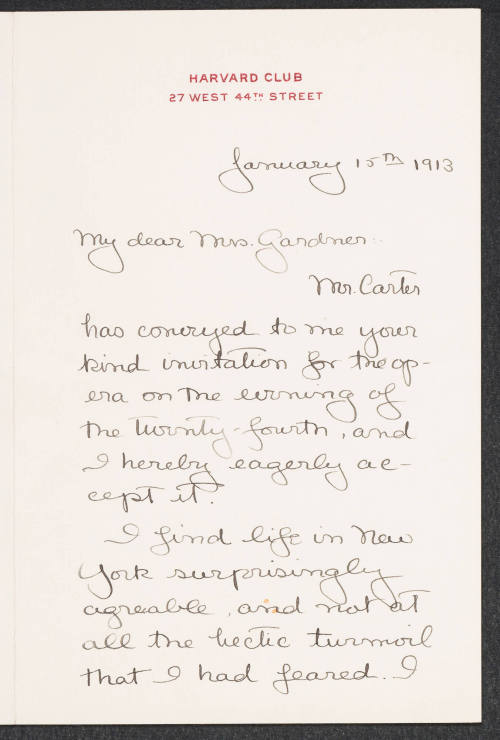 HARVARD CLUB
27 WEST 44TH STREET
January 15th 1913
My dear Mrs. Gardner:
Mr. Carter
has conveyed to me your
kind invitation for the op-
era on the evening of
the twenty-fourth, and
I hereby eagerly ac-
cept it.
I find life in New
York surprisingly
agreable, and not at
all the hectic turmoil
that I had feared. I